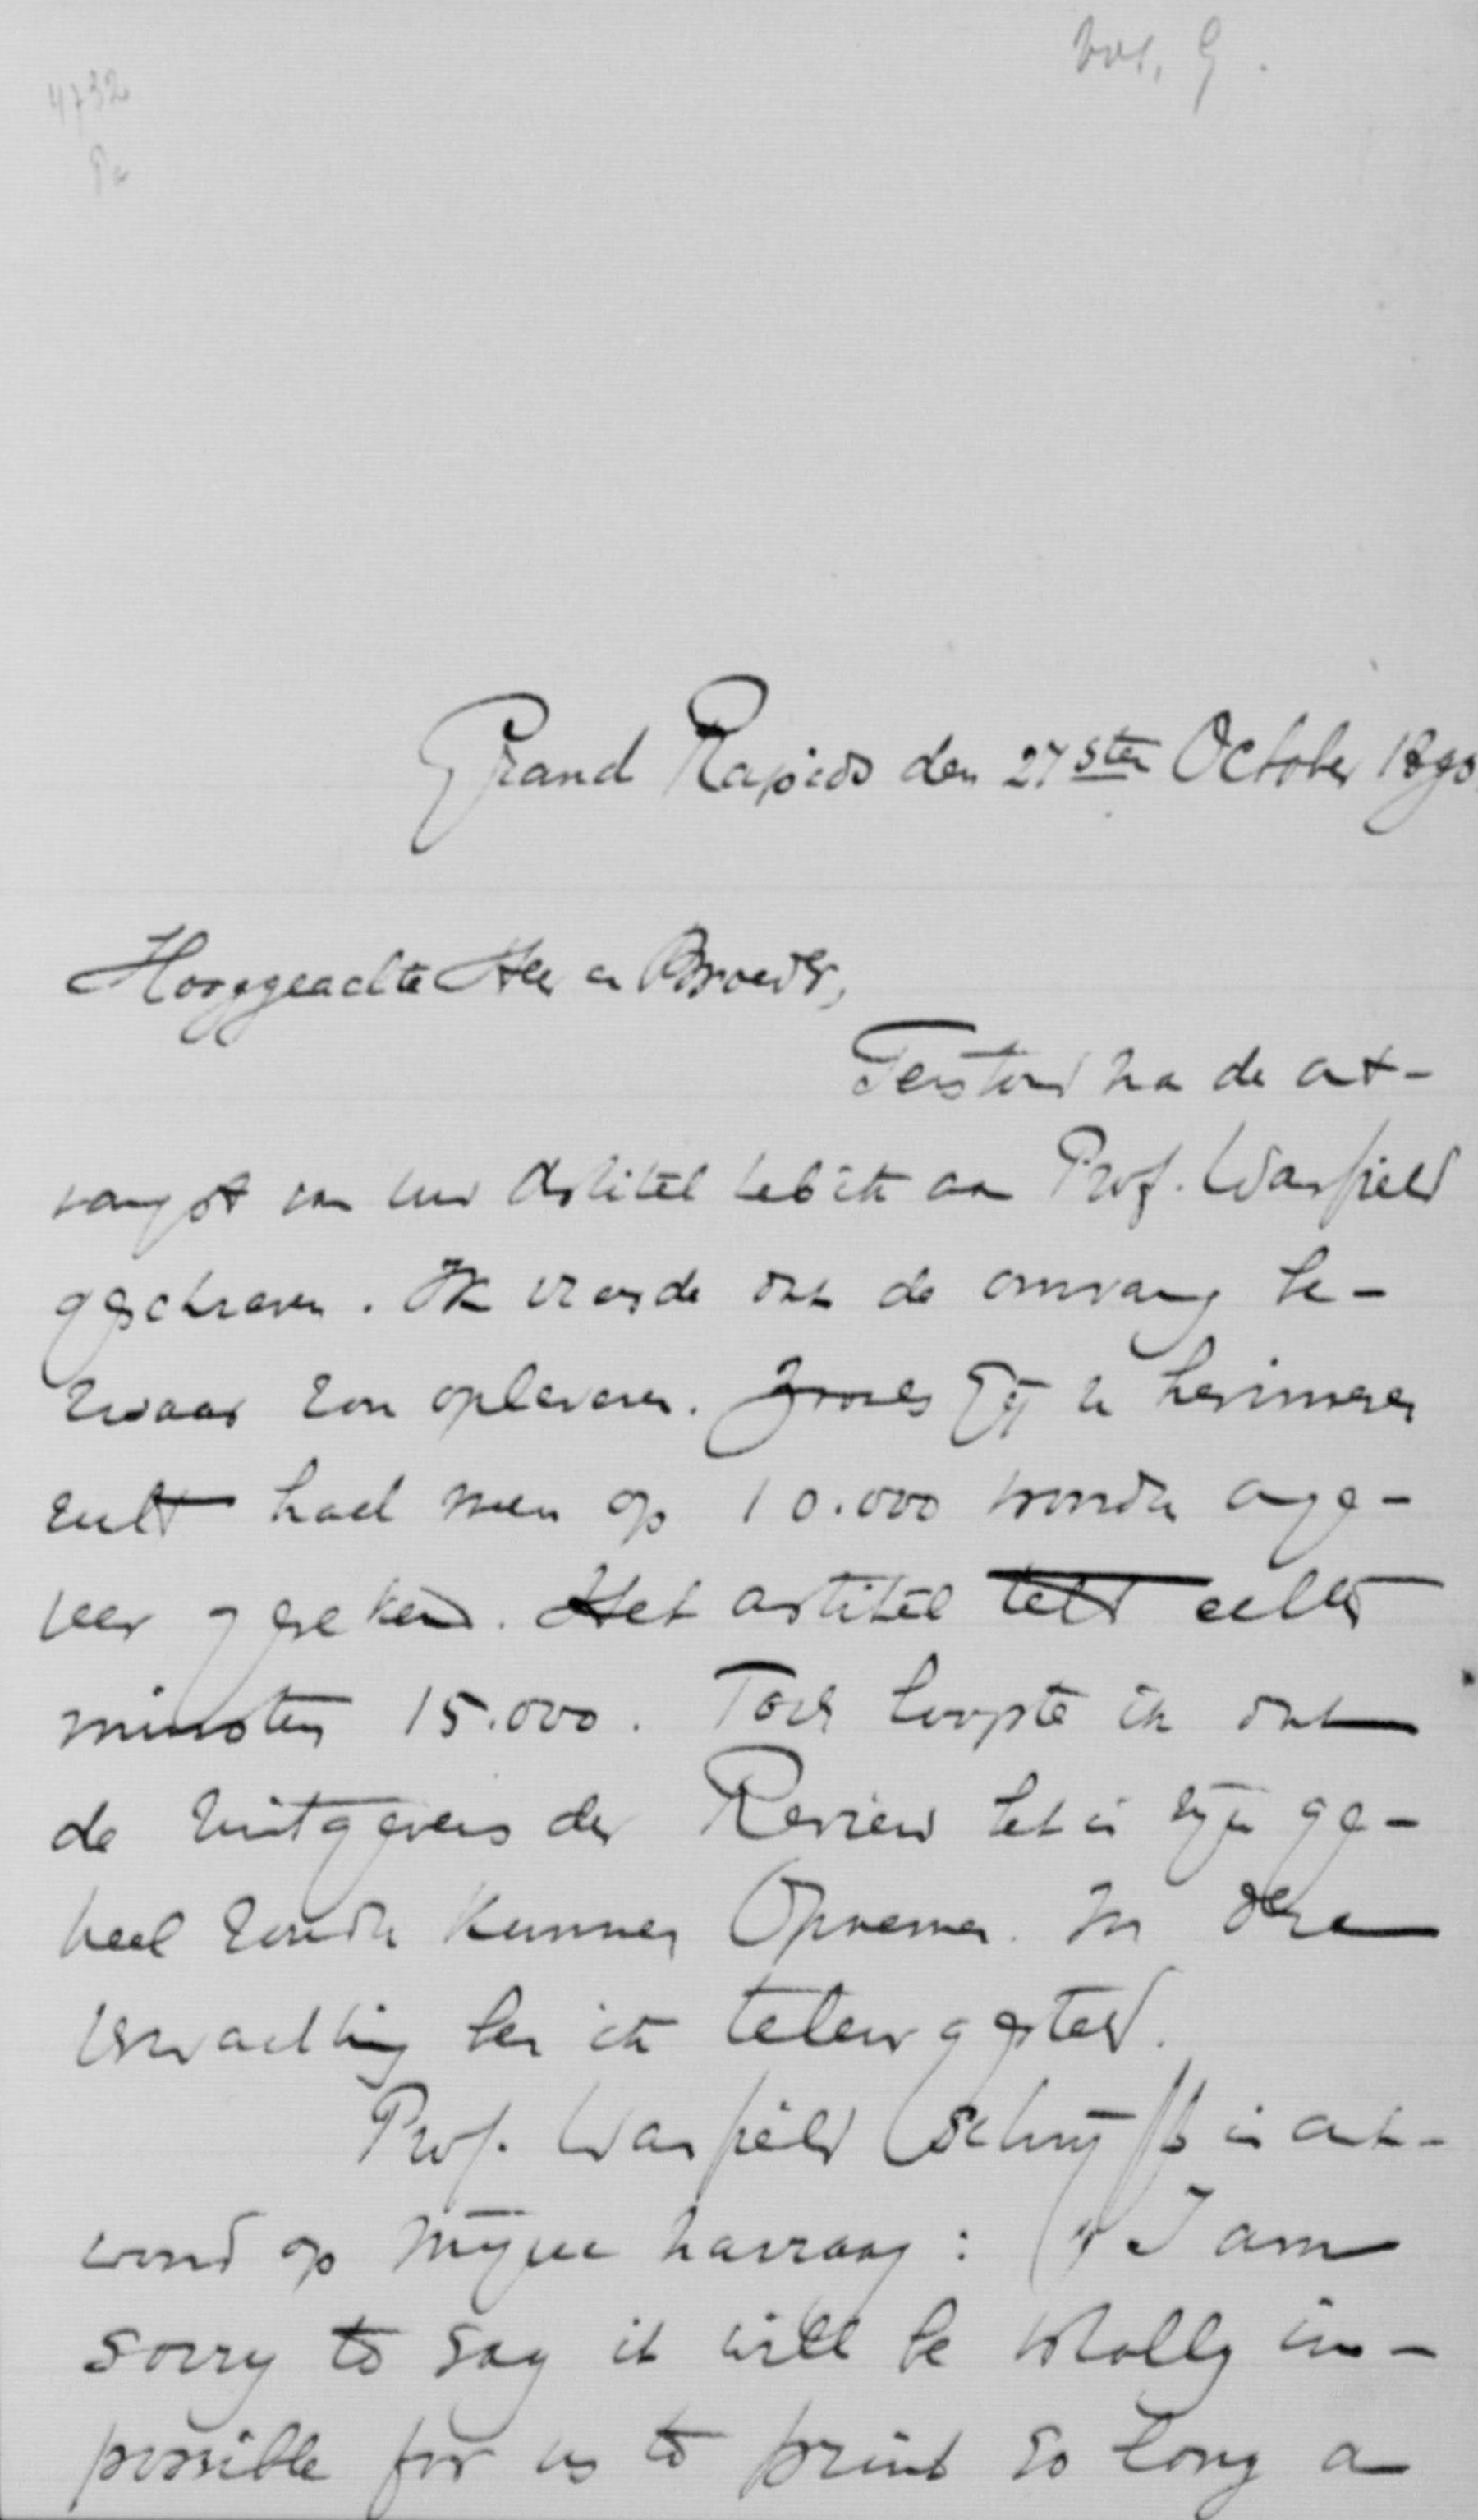 4732
Grand Rapids den 27sten October 1890
Hooggeachte Heer en Broeder,
Terstond na de ont-
vangst van uw Artikel heb ik aan Prof. Warfield
geschreven. Ik vreesde dat de omvang be-
zwaar zou opleveren. Zooals Gij U herinneren
zult had men op 10.000 woorden onge-
veer gerekend. Het artikel telt echter
minstens 15.000. Toch hoopte ik dat
de uitgevers der Review het in zijn ge-
heel zouden kunnen Opnemen. In deze
verwachting ben ik teleurgesteld.
Prof. Warfield schrijft in ant-
woord op mijne navraag: "I am
sorry to say it will be wholly im-
possible for us to print so long a